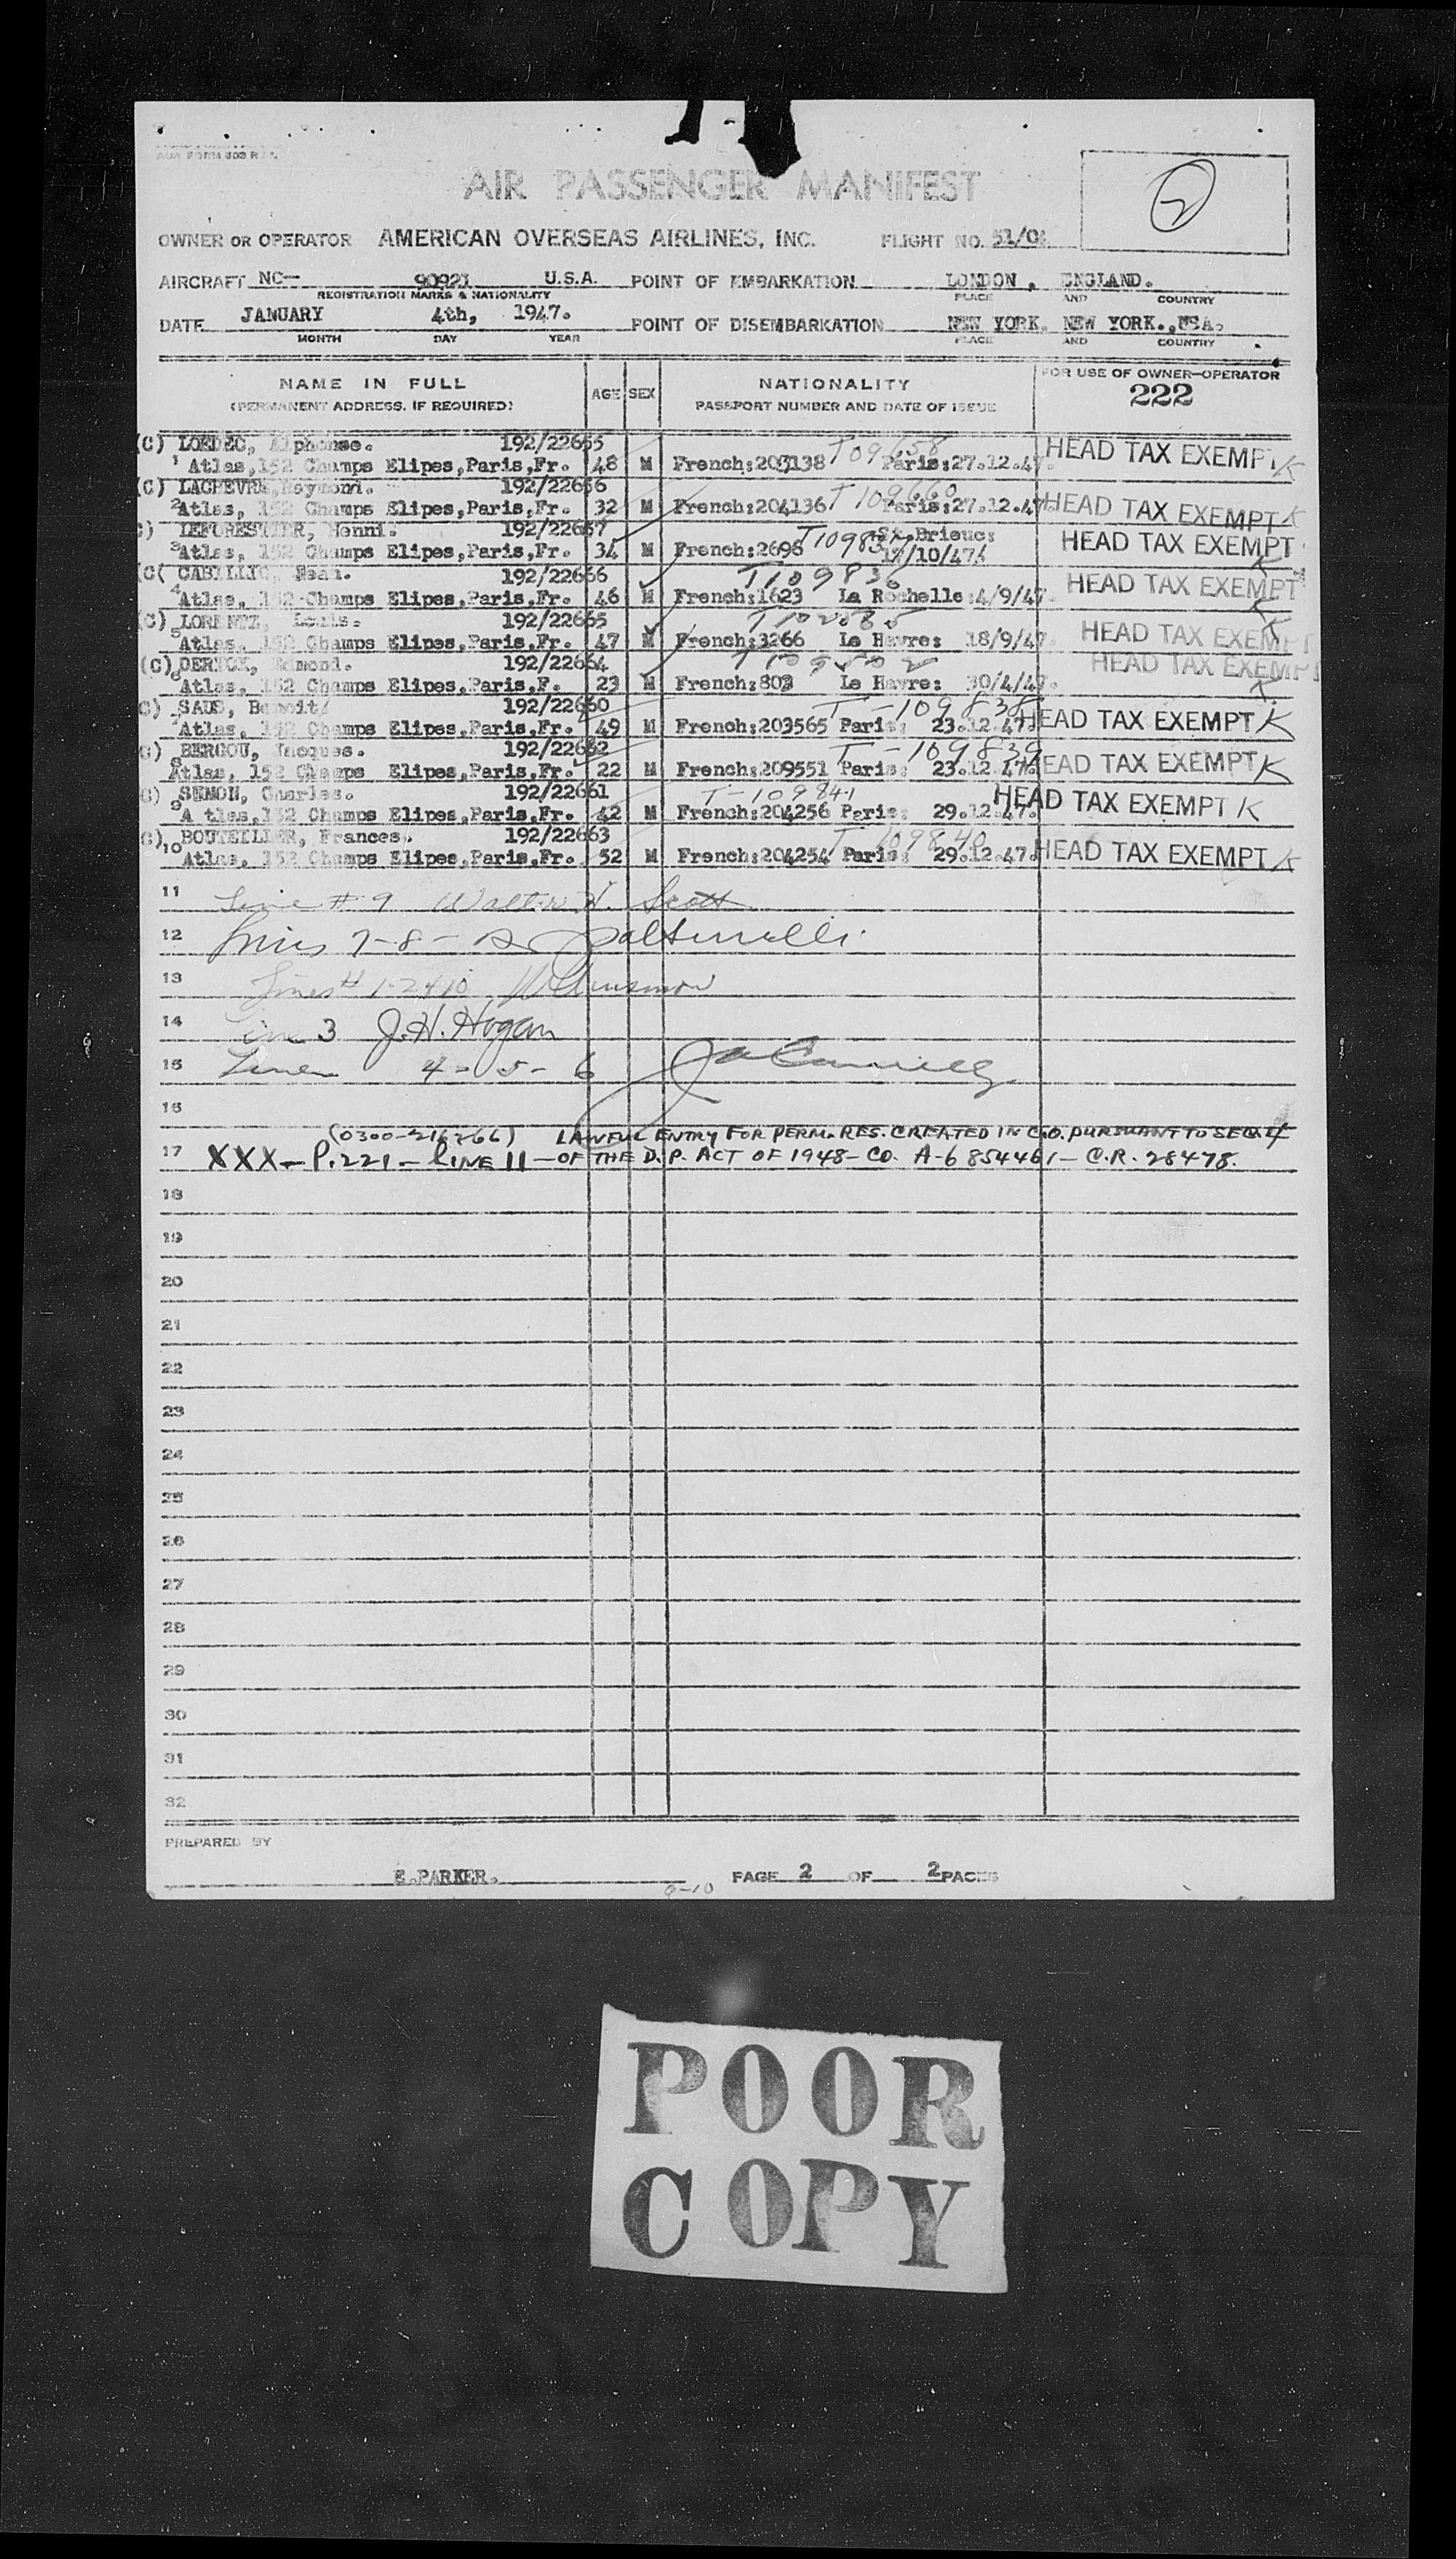 AIR PASSENGER MANIFEST
2
OWNER OR OPERATOR AMERICAN OVERSEAS AIRLINES, INC. FLIGHT NO. 51/0
AIRCRAFT NC— 90921 U.S.A. POINT OF EMBARKATION LONDON, ENGLAND.
REGISTRATION MARKS & NATIONALITY PLACE AND COUNTRY
DATE JANUARY 4th, 1947. POINT OF DISEMBARKATION NEW YORK. NEW YORK., USA.
MONTH DAY YEAR PLACE AND COUNTRY
NAME IN FULL AGE SEX NATIONALITY FOR USE OF OWNER-OPERATOR
(PERMANENT ADDRESS, IF REQUIRED) PASSPORT NUMBER AND DATE OF ISSUE 222
(C) Alphonse. 192/22655
1 Atlas,152 Champs Elipes,Paris,Fr. 48 M French:203138 Paris:27.12.47. HEAD TAX EXEMPT K
(C) 192/22656 T109660
2 Atlas, 152 Champs Elipes,Paris,Fr. 32 M French:204136 Paris:27.12.47. HEAD TAX EXEMPT K
C) LEFORESTIER, Henni. 192/22667 St.Brieuc:
3 Atlas, 152 Champs Elipes,Paris,Fr. 34 M French:2696 HEAD TAX EXEMPT
(C( CABILLIC, 192/22666 T109836
4 Atlas, 152 Champs Elipes,Paris,Fr. 46 M French:1623 La Rochelle:4/9/47. HEAD TAX EXEMPT K
(C) LORENTZ, Louis. 192/22665
5 Atlas, 152 Champs Elipes,Paris,Fr. 47 M French:3266 Le Havre: 18/9/47. HEAD TAX EXEMPT K
(C) Edmond. 192/22664
6 Atlas, 152 Champs Elipes,Paris.F. 23 M French:803 Le Havre: 30/4/47. HEAD TAX EXEMPT K
C) Benoit/ 192/22660 T-109838
7 Atlas, 152 Champs Elipes,Paris,Fr. 49 M French:203565 Paris: 23.12.47. HEAD TAX EXEMPT K
C) BERCOU, Jacques. 192/22662 T-109839
8 Atlas, 152 Champs Elipes,Paris,Fr. 22 M French:209551 Paris: 23.12.47. HEAD TAX EXEMPT K
C) SEMON, Charles. 192/22661 T-109841
9 A tlas,152 Champs Elipes,Paris,Fr. 42 M French:204256 Paris: 29.12.47. HEAD TAX EXEMPT K
C) BOUTEILLER, Frances. 192/22663 T 109840
10 Atlas, 152 Champs Elipes,Paris,Fr. 52 M French:204254 Paris: 29.12.47. HEAD TAX EXEMPT K
11 Line # 9 Walter H. Scott
12 Lines 7-8-
13 Lines # 1-2+10
14 Line 3 J.H. Hogan
15 Lines 4-5-6
16
(0300-216766) LAWFUL ENTRY FOR PERM. RES. CREATED IN C.O. PURSUANT TO SEC. 4
17 XXX — P.221 — LINE 11 — OF THE D.P. ACT OF 1948 — CO. A-6854461 — C.R. 28478.
18
19
20
21
22
23
24
25
26
27
28
29
30
31
32
PREPARED BY
E.PARKER. PAGE 2 OF 2 PAGES
POOR
COPY